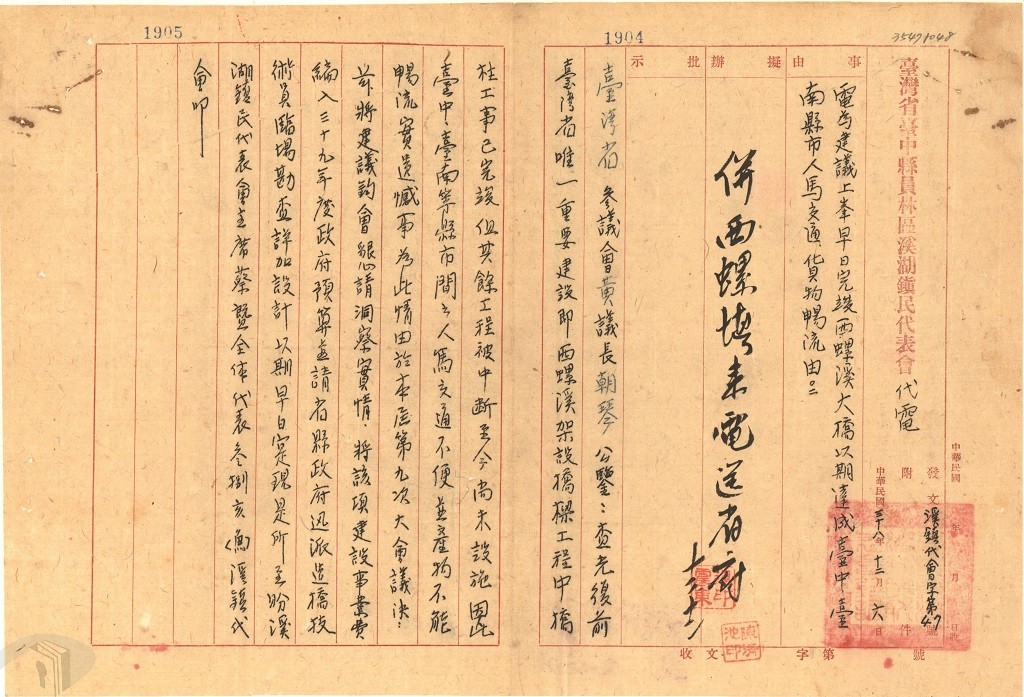 1905
1904
35471048
臺灣省臺中縣員林區溪湖鎮民代表會代電
中華民國 年 月 日收
發文溪鎮代會字第47號
附 件
中華民國三十八年十二月六日
事由
擬辦
批示
電為建議上峯早日完竣西螺溪大橋以期達成臺中臺
南縣市人馬交通貨物暢流由
併西螺埤來電送省府
臺灣省參議會黃議長朝琴公鑒：查光復前
臺灣省唯一重要建設即西螺溪架設橋樑工程中橋
柱工事已完竣但其餘工程被中斷至今尚未設施因此
臺中、臺南等縣市間之人馬交通不便並產物不能
暢流實遺憾事為此情由於本屆第九次大會議決：
茲將建議鈞會懇請洞察實情，將該項建設事業費
編入三十九年度政府預算並請省縣政府迅派造橋技
術員臨場勘查詳加設計以期早日實現是所至盼溪
湖鎮民代表會主席蔡暨全体代表叁捌亥魚溪鎮代
會叩
收文 字第 號